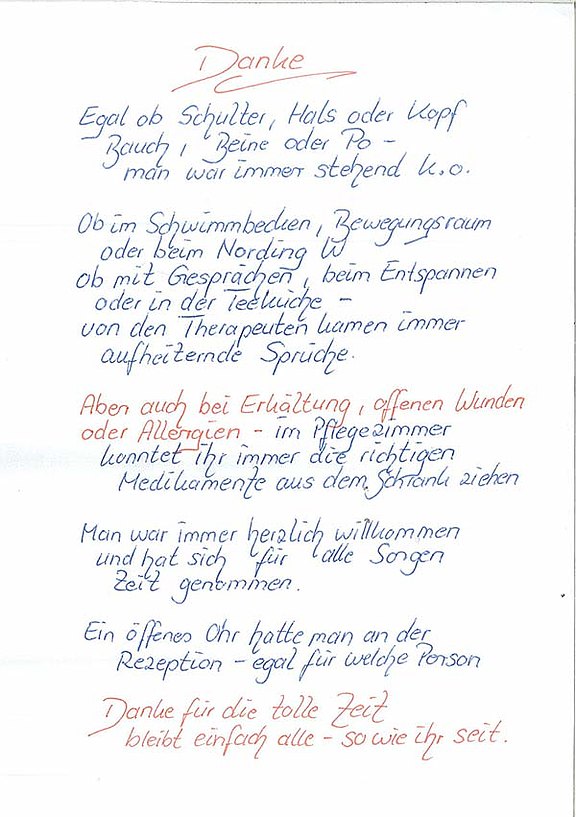 Danke
Egal ob Schulter, Hals oder Kopf
Bauch, Beine oder Po -
man war immer stehend k.o.
Ob im Schwimmbecken, Bewegungsraum
oder beim Nording W
ob mit Gesprächen, beim Entspannen
oder in der Teeküche -
von den Therapeuten kamen immer
aufheiternde Sprüche.
Aber auch bei Erkältung, offenen Wunden
oder Allergien - im Pflegezimmer
konntet ihr immer die richtigen
Medikamente aus dem Schrank ziehen
Man war immer herzlich willkommen
und hat sich für alle Sorgen
Zeit genommen.
Ein offenes Ohr hatte man an der
Rezeption - egal für welche Person
Danke für die tolle Zeit
bleibt einfach alle - so wie ihr seit.